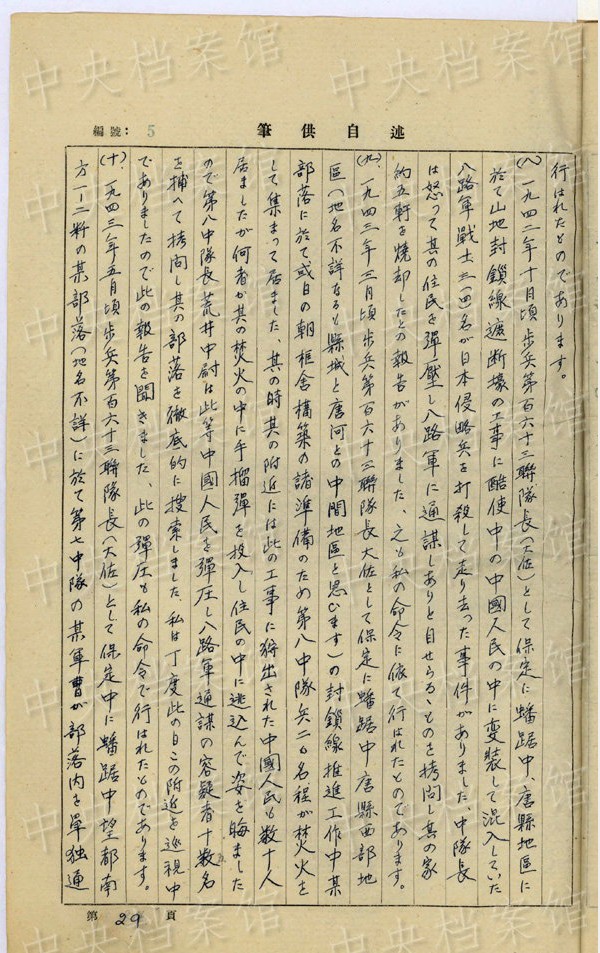 編號：5
筆供自述
行はれたものであります。
(八)、一九四二年十月頃歩兵第百六十三聯隊長(大佐)として保定に蟠踞中、唐縣地區に
於て山地封鎖線遮断壕の工事に酷使中の中國人民の中に変装して混入していた
八路軍戰士三(四名が日本侵略兵を打殺して走り去った事件がありました、中隊長
は怒って其の住民を彈壓し八路軍に通謀しありと目せらるゝものを拷問し其の家
約五軒を燒却したとの報告がありました、之も私の命令に依て行はれたものであります。
(九)、一九四三年三月頃歩兵第百六十三聯隊長大佐として保定に蟠踞中唐縣西部地
區(地名不詳なるも縣城と唐河との中間地區と思います)の封鎖線推進工作中某
部落に於て或日の朝 舎構築の諸準備のため第八中隊兵二〇名程が焚火を
して集まって居ました、其の時其の附近には此の工事に狩出された中國人民も数十人
居ましたが何者か其の焚火の中に手榴彈を投入し住民の中に逃込んで姿を晦ました
ので第八中隊長荒井中尉は此等中國人民を彈圧し八路軍通謀の容疑者十数名
を捕へて拷問し其の部落を徹底的に搜索しました 私は丁度此の日この附近を巡視中
でありましたので此の報告を聞きました、此の彈圧も私の命令で行はれたものであります。
(十)、一九四三年五月頃歩兵第百六十三聯隊長(大佐)として保定中に蟠踞中望都南
方一ー二粁の某部落(地名不詳)に於て第七中隊の某軍曹が部落内を單独通
第29頁